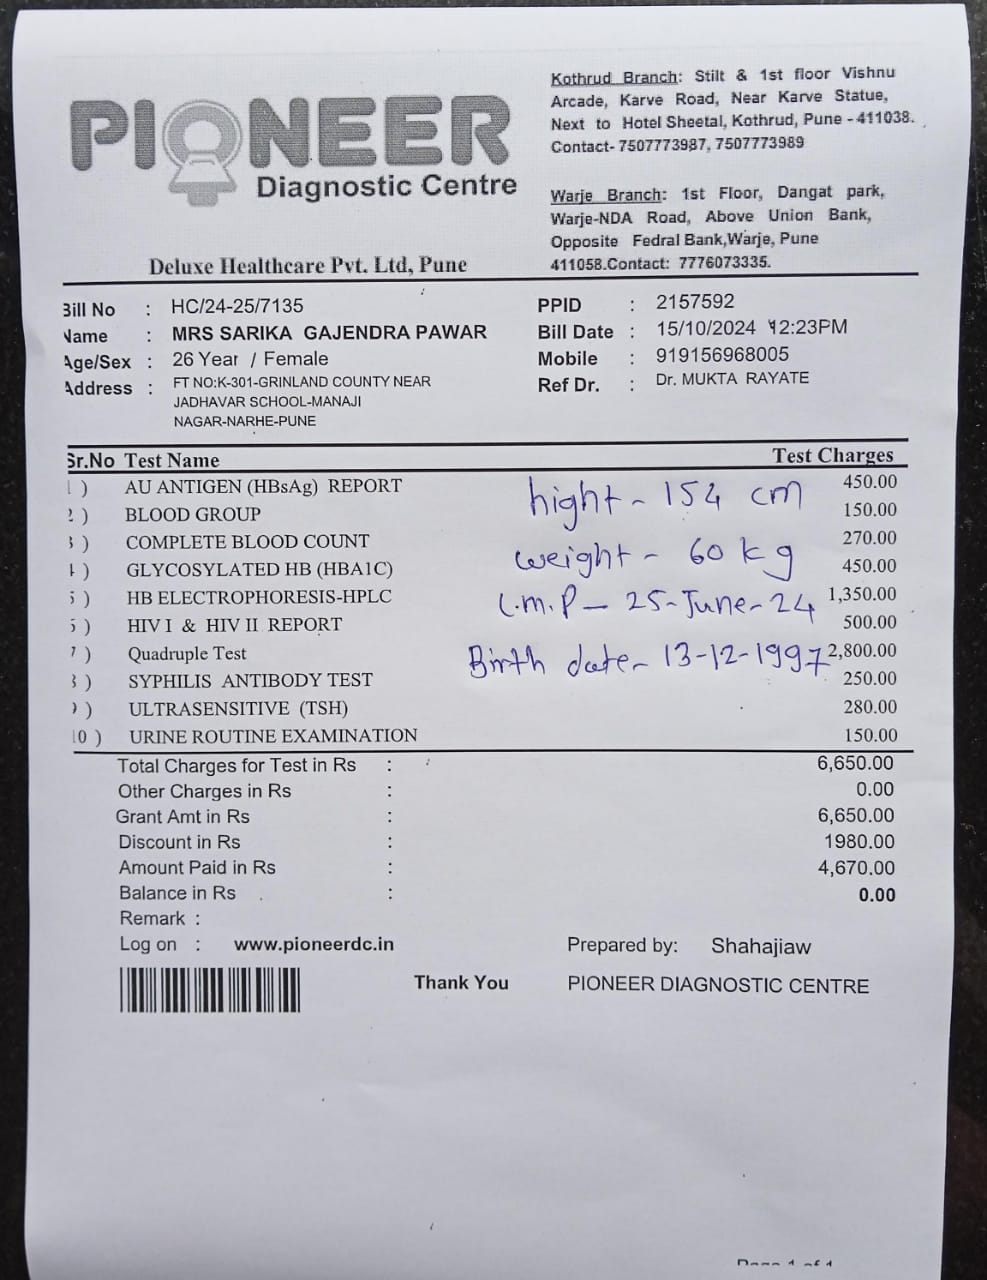 PIONEER
Diagnostic Centre
Deluxe Healthcare Pvt. Ltd, Pune
Kothrud Branch: Stilt & 1st floor Vishnu
Arcade, Karve Road, Near Karve Statue,
Next to Hotel Sheetal, Kothrud, Pune - 411038.
Contact- 7507773987, 7507773989
Warje Branch: 1st Floor, Dangat park,
Warje-NDA Road, Above Union Bank,
Opposite Fedral Bank,Warje, Pune
411058.Contact: 7776073335.
Bill No : HC/24-25/7135 PPID : 2157592
Name : MRS SARIKA GAJENDRA PAWAR Bill Date : 15/10/2024 12:23PM
Age/Sex : 26 Year / Female Mobile : 919156968005
Address : FT NO:K-301-GRINLAND COUNTY NEAR Ref Dr. : Dr. MUKTA RAYATE
JADHAVAR SCHOOL-MANAJI
NAGAR-NARHE-PUNE
Sr.No Test Name Test Charges
1 ) AU ANTIGEN (HBsAg) REPORT 450.00
hight - 154 cm
2 ) BLOOD GROUP 150.00
3 ) COMPLETE BLOOD COUNT 270.00
weight - 60 kg
4 ) GLYCOSYLATED HB (HBA1C) 450.00
5 ) HB ELECTROPHORESIS-HPLC 1,350.00
L.m.P - 25-June-24
6 ) HIV I & HIV II REPORT 500.00
7 ) Quadruple Test 2,800.00
Birth date - 13-12-1997
8 ) SYPHILIS ANTIBODY TEST 250.00
9 ) ULTRASENSITIVE (TSH) 280.00
10 ) URINE ROUTINE EXAMINATION 150.00
Total Charges for Test in Rs : 6,650.00
Other Charges in Rs : 0.00
Grant Amt in Rs : 6,650.00
Discount in Rs : 1980.00
Amount Paid in Rs : 4,670.00
Balance in Rs : 0.00
Remark :
Log on : www.pioneerdc.in Prepared by: Shahajiaw
Thank You PIONEER DIAGNOSTIC CENTRE